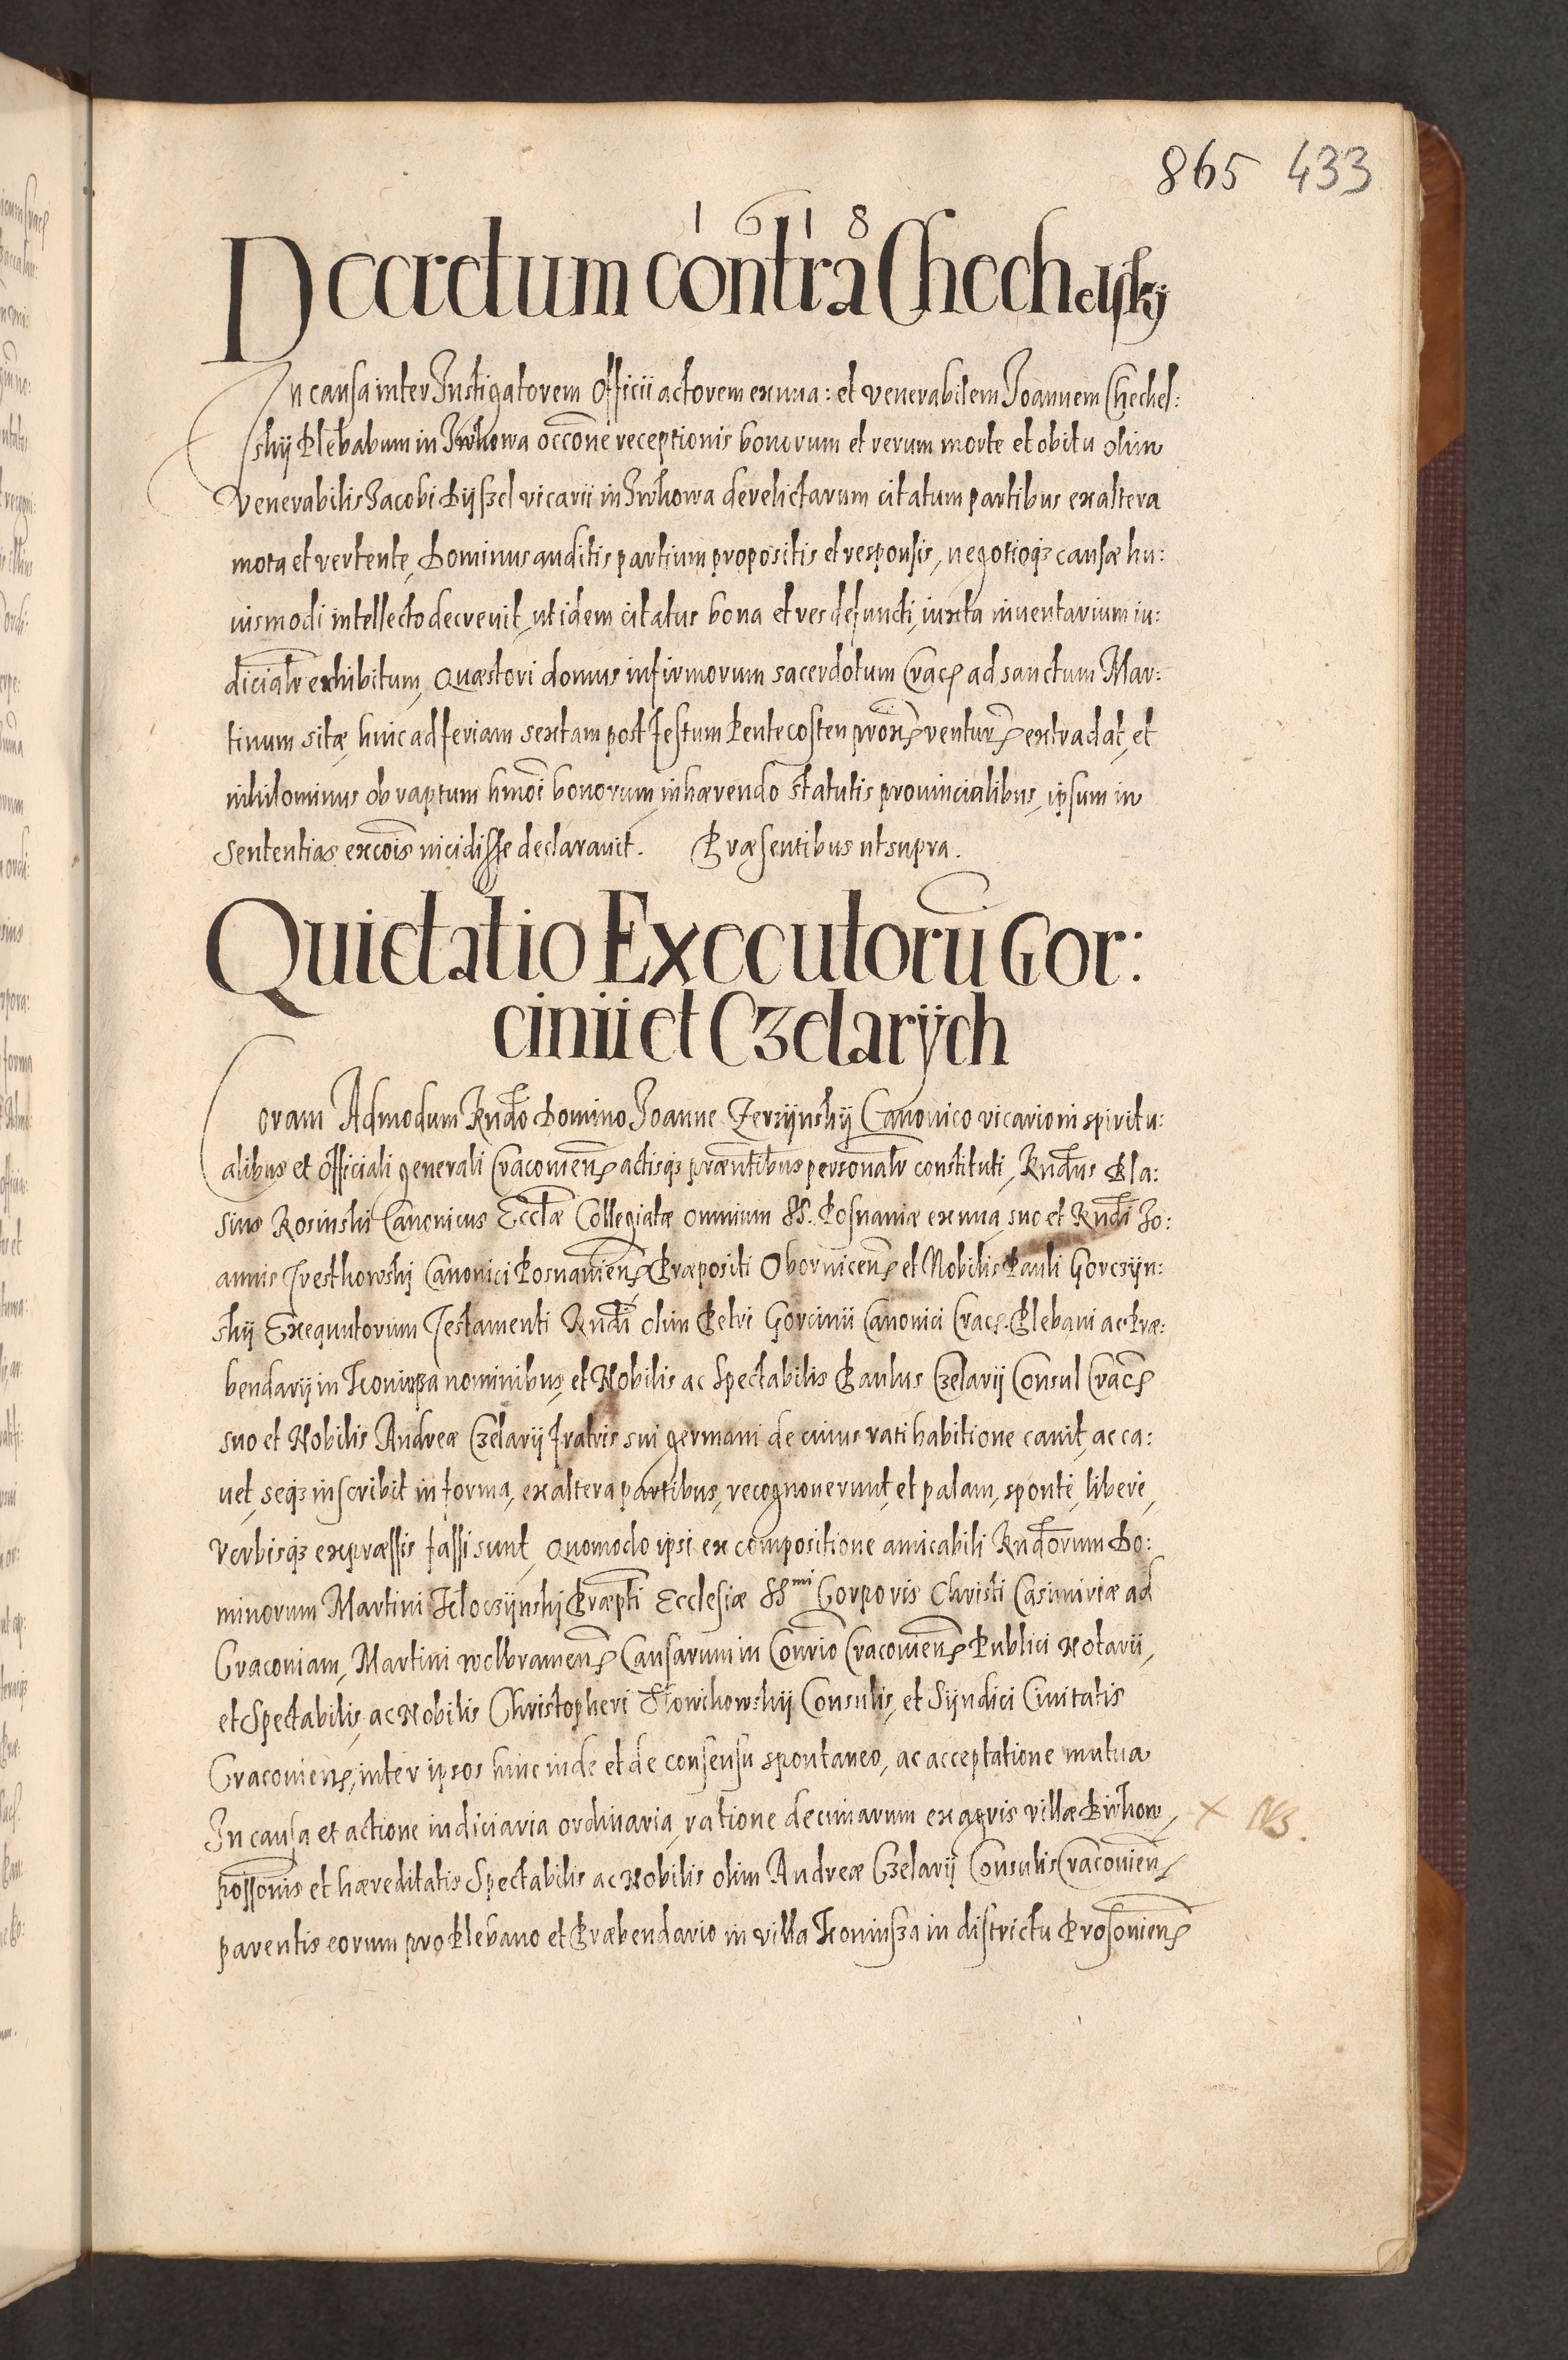 865 433
1618
Decretum contra Chechelskÿ
In causa inter Instigatorem Officii actorem ex una: et venerabilem Joannem Chechel:
skÿ Plebabum in occōne receptionis bonorum et rerum morte et obitu olim
Venerabilis Jacobi vicarii in derelictarum citatum partibus ex altera
mota et vertente, Dominus auditis partium propositis et responsis, negotioq₃ causæ hu:
iusmodi intellecto decrevit, ut idem citatus bona et res defuncti, iuxta inventarium iu:
dicialr exhibitum, Quæstori domus infirmorum sacerdotum Crac. ad sanctum Mar:
tinum sitæ, hinc ad feriam sextam post festum Pentecosten proxe venturū extradat, et
nihilominus ob raptum hmōi bonorum, inhærendo statutis provincialibus, ipsum in
sententias excōis incidisse declaravit. Præsentibus ut supra.
Quietatio Executorū Gor:
cinii et Czelarÿch
Coram Admodum Rndo Domino Joanne Zerzÿnskÿ Canonico vicario in spiritu:
alibus et Officiali generali Cracovien. actisq₃ præntibus personalr constituti, Rndus Bla:
sius Rosinski Canonicus Eccłæ Collegiatæ omnium SS. Posnaniæ ex una, suo et Rndi Jo:
annis Canonici Posnanien. Præpositi Obornicen. et Nobilis Pauli Gorczÿn:
skÿ Exequutorum Testamenti Rndi olim Petri Gorcinii Canonici Crac. Plebani ac Præ:
bendarÿ in Koniusza nominibus, et Nobilis ac Spectabilis Paulus Czelarÿ Consul Crac.
suo et Nobilis Andreæ Czelarÿ fratris sui germani de cuius rati habitione cavit, ac ca:
vet, seq₃ inscribit in forma, ex altera partibus, recognoverunt, et palam, spontè, liberè,
verbisq₃ expræssis fassi sunt, Quomodo ipsi ex compositione amicabili Rndorum Do:
minorum Martini Kłoczÿnskj Præpti Ecclesiæ SSmi Corporis Christi Casimiriæ ad
Cracoviam, Martini Wolbramen. Causarum in Conrio Cracovien. Publici Notarii,
et Spectabilis, ac Nobilis Christopheri Consulis, et Sÿndici Civitatis
Cracovien. inter ipsos hinc inde et de consensu spontaneo, ac acceptatione mutua
In causa et actione iudiciaria ordinaria, ratione decimarum ex agris villæ × NB.
possonis et hæreditatis Spectabilis ac Nobilis olim Andreæ Czelarÿ Consulis Cracovien.
parentis eorum pro Plebano et Præbendario in villa Koniusza in districtu Prosovien.